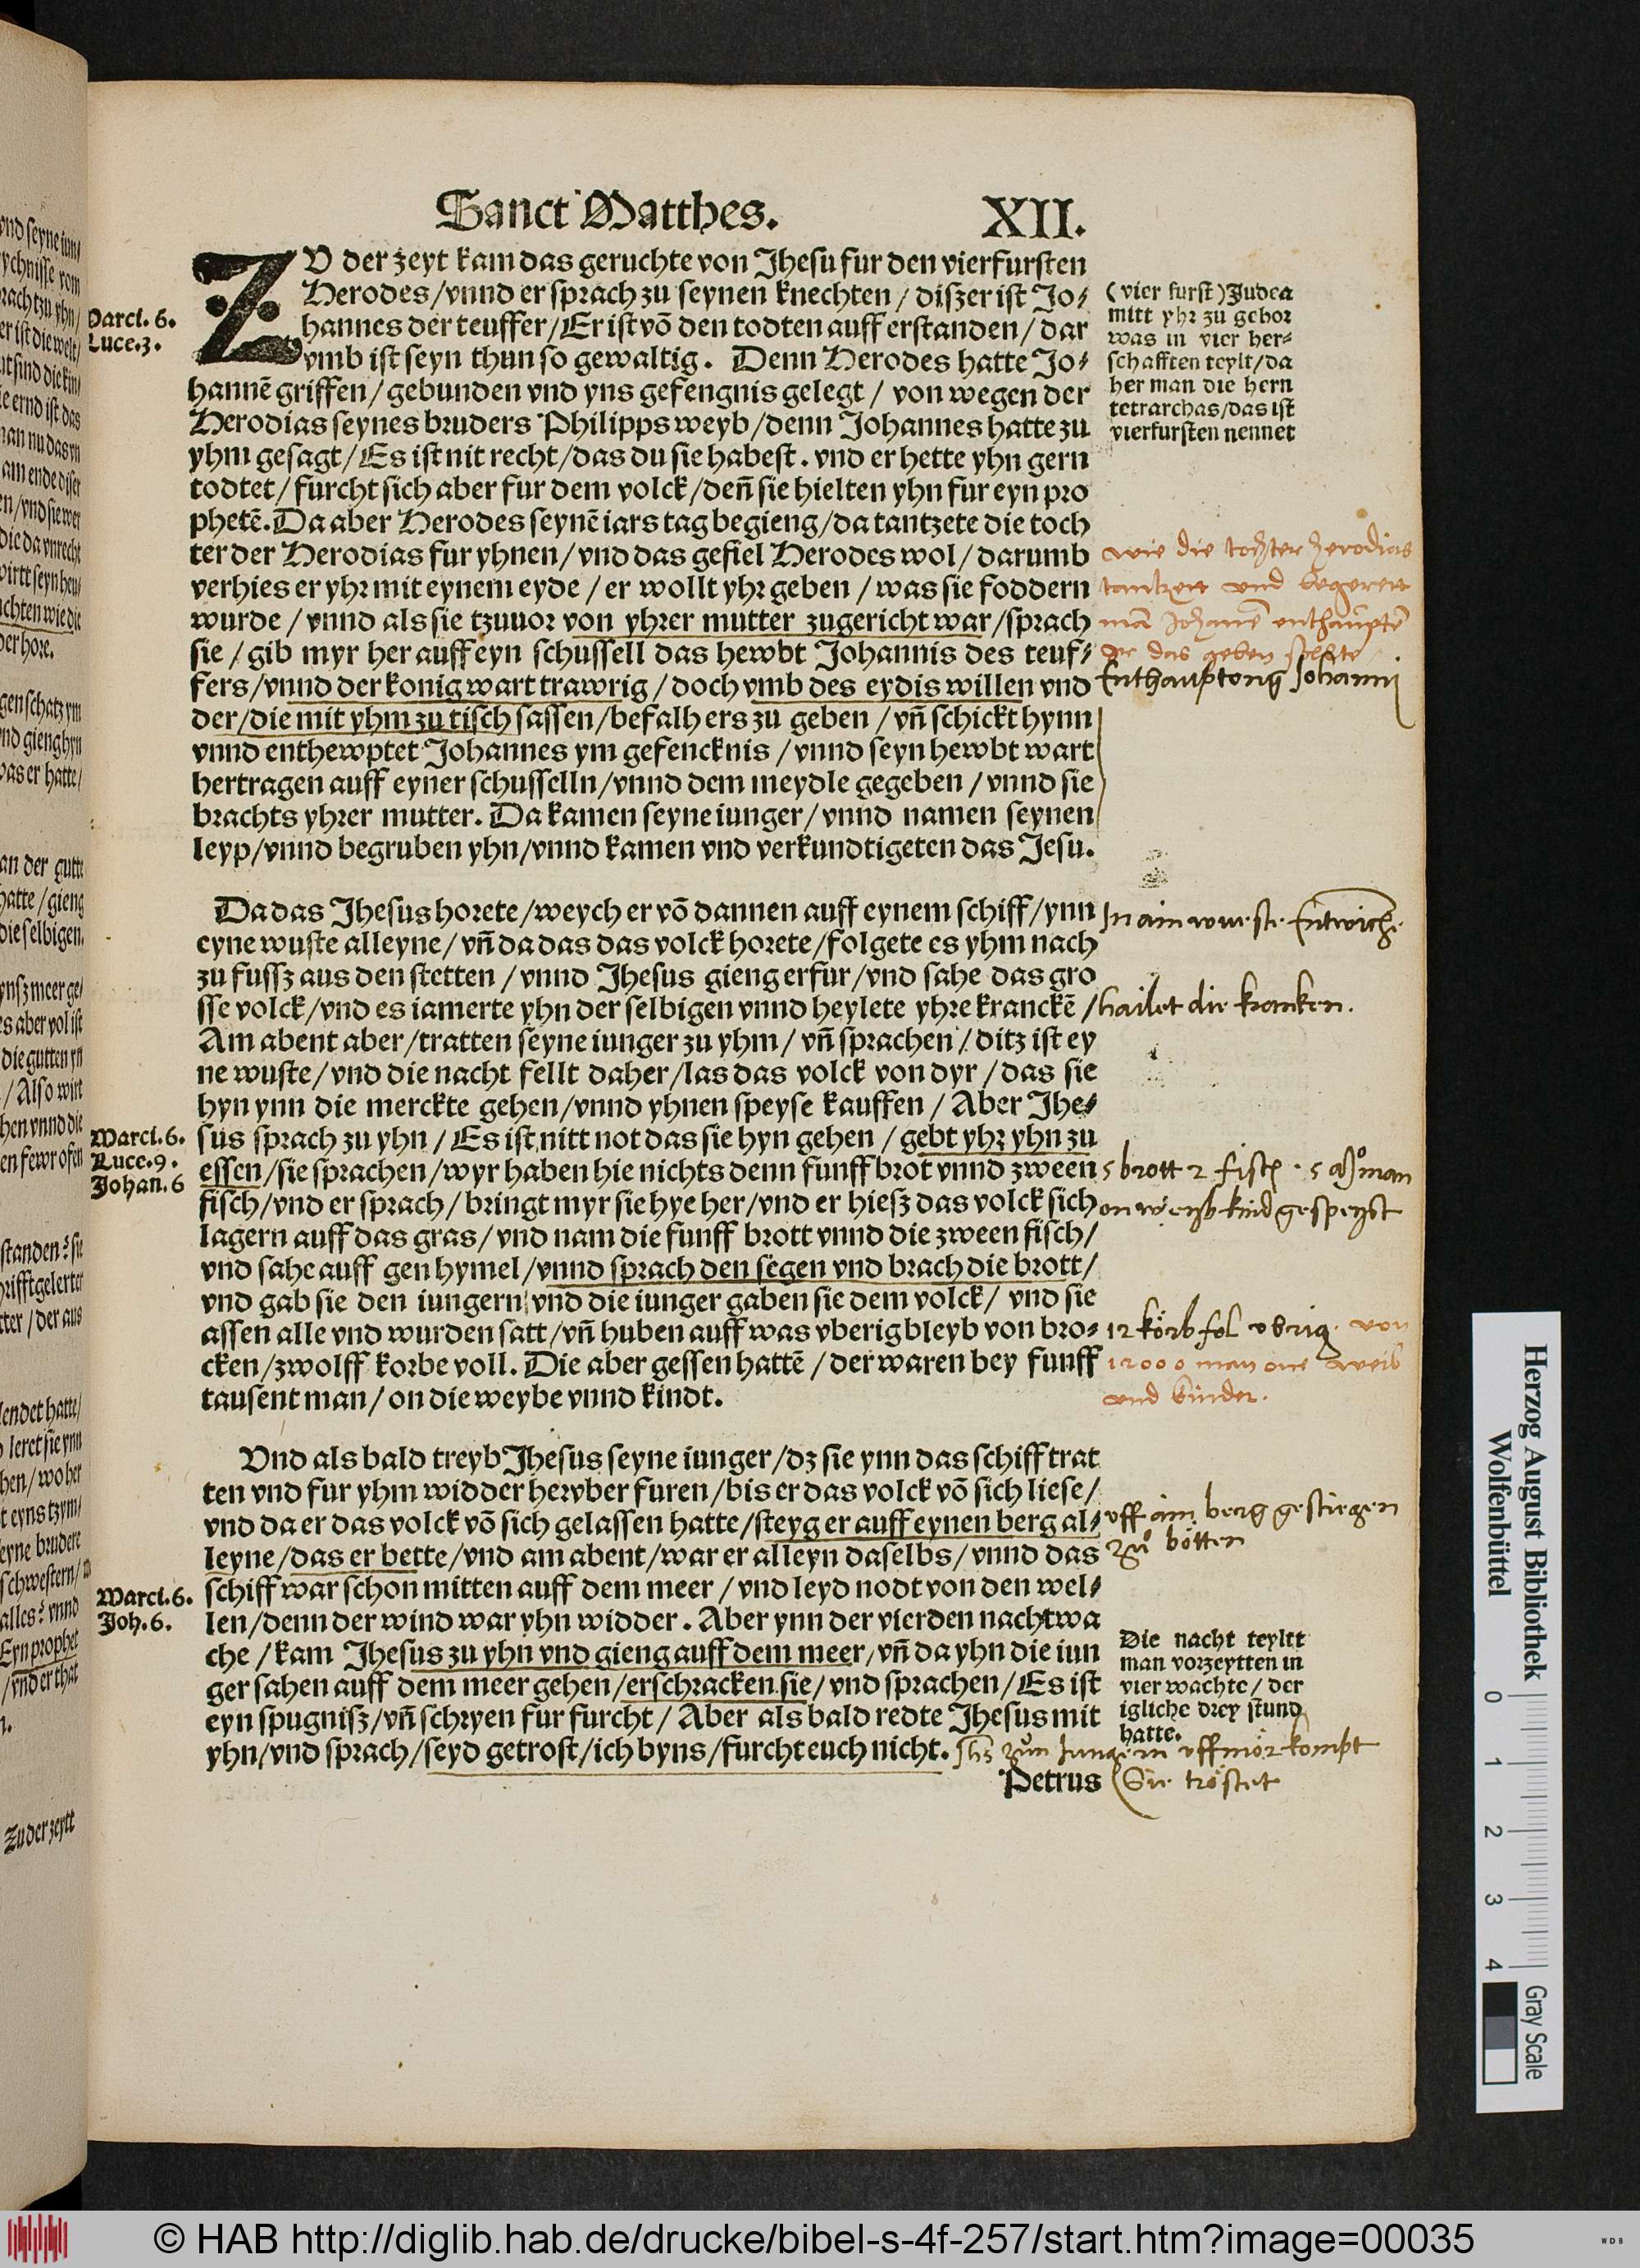 Sanct Matthes. XII.
ZU der zeyt kam das geruchte von Jhesu fur den vierfursten
Herodes/vnnd er sprach zu seynen knechten/diszer ist Jo⸗
hannes der teuffer/Er ist võ den todten auff erstanden/dar
vmb ist seyn thun so gewaltig. Denn Herodes hatte Jo⸗
hannẽ griffen/gebunden vnd yns gefengnis gelegt/von wegen der
Herodias seynes bruders Philipps weyb/denn Johannes hatte zu
yhm gesagt/Es ist nit recht/das du sie habest. vnd er hette yhn gern
todtet/furcht sich aber fur dem volck/deñ sie hielten yhn fur eyn pro
phetẽ. Da aber Herodes seynẽ iars tag begieng/da tantzete die toch
ter der Herodias fur yhnen/vnd das gefiel Herodes wol/darumb
verhies er yhr mit eynem eyde/er wollt yhr geben/was sie foddern
wurde/vnnd als sie tzuuor von yhrer mutter zugericht war/sprach
sie/gib myr her auff eyn schussell das hewbt Johannis des teuf⸗
fers/vnnd der konig wart trawrig/doch vmb des eydis willen vnd
der/die mit yhm zu tisch sassen/befalh ers zu geben/vñ schickt hynn
vnnd enthewptet Johannes ym gefencknis/vnnd seyn hewbt wart
hertragen auff eyner schusselln/vnnd dem meydle gegeben/vnnd sie
brachts yhrer mutter. Da kamen seyne iunger/vnnd namen seynen
leyp/vnnd begruben yhn/vnnd kamen vnd verkundtigeten das Jesu.
Marci. 6.
Luce. 3.
(vier furst) Judea
mitt yhr zu gehor
was in vier her⸗
schafften teylt/da
her man die hern
tetrarchas/das ist
vierfursten nennet
wie die tochter herodias
tantzett und begerett
Enthauptong Johannis
Da das Jhesus horete/weych er võ dannen auff eynem schiff/ynn
eyne wuste alleyne/vñ da das das volck horete/folgete es yhm nach
zu fussz aus den stetten/vnnd Jhesus gieng erfur/vnd sahe das gro
sse volck/vnd es iamerte yhn der selbigen vnnd heylete yhre kranckẽ/
Am abent aber/tratten seyne iunger zu yhm/vñ sprachen/ditz ist ey
ne wuste/vnd die nacht fellt daher/las das volck von dyr/das sie
hyn ynn die merckte gehen/vnnd yhnen speyse kauffen/Aber Jhe⸗
sus sprach zu yhn/Es ist nitt not das sie hyn gehen/gebt yhr yhn zu
essen/sie sprachen/wyr haben hie nichts denn funff brot vnnd zween
fisch/vnd er sprach/bringt myr sie hye her/vnd er hiesz das volck sich
lagern auff das gras/vnd nam die funff brott vnnd die zween fisch/
vnd sahe auff gen hymel/vnnd sprach den segen vnd brach die brott/
vnd gab sie den iungern/vnd die iunger gaben sie dem volck/vnd sie
assen alle vnd wurden satt/vñ huben auff was vberig bleyb von bro⸗
cken/zwolff korbe voll. Die aber gessen hattẽ/der waren bey funff
tausent man/on die weybe vnnd kindt.
Marci. 6.
Luce. 9.
Johan. 6
In ain wueste Entwich
hailet die kranken.
5 brott 2 fisch
12 körb fol vbrig. von
12000 man one weib
und kinder.
Vnd als bald treyb Jhesus seyne iunger/dz sie ynn das schiff trat
ten vnd fur yhm widder hervber furen/bis er das volck võ sich liese/
vnd da er das volck võ sich gelassen hatte/steyg er auff eynen berg al⸗
leyne/das er bette/vnd am abent/war er alleyn daselbs/vnnd das
schiff war schon mitten auff dem meer/vnd leyd nodt von den wel⸗
len/denn der wind war yhn widder. Aber ynn der vierden nachtwa
che/kam Jhesus zu yhn vnd gieng auff dem meer/vñ da yhn die iun
ger sahen auff dem meer gehen/erschracken sie/vnd sprachen/Es ist
eyn spugnisz/vñ schryen fur furcht/Aber als bald redte Jhesus mit
yhn/vnd sprach/seyd getrost/ich byns/furcht euch nicht.
Petrus
Marci. 6.
Joh. 6.
vff ain berg gestiegen
zů bötten
Die nacht teyltt
man vorzeytten in
vier wachte/der
igliche drey stund
hatte.
Sie tröstet
Herzog August Bibliothek
Wolfenbüttel
0 1 2 3 4
Gray Scale
© HAB http://diglib.hab.de/drucke/bibel-s-4f-257/start.htm?image=00035
WDB